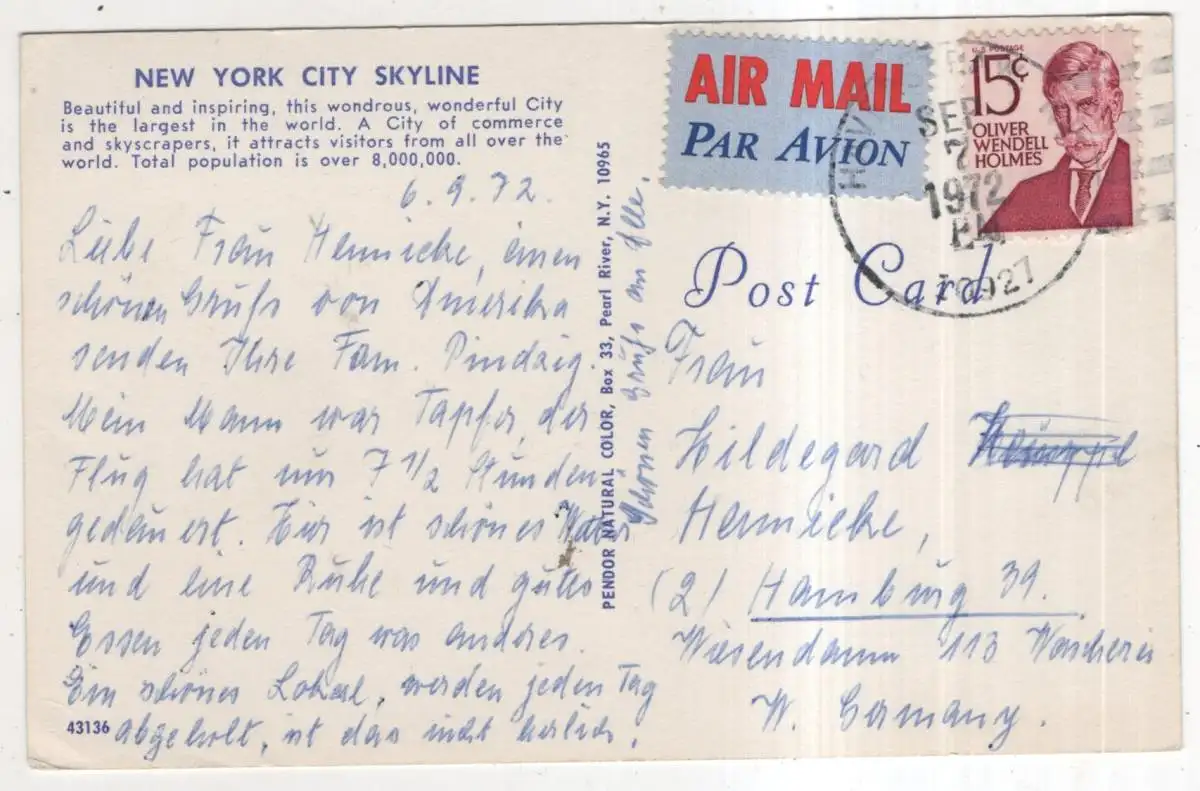 NEW YORK CITY SKYLINE
Beautiful and inspiring, this wondrous, wonderful City
is the largest in the world. A City of commerce
and skyscrapers, it attracts visitors from all over the
world. Total population is over 8,000,000.
6.9.72.
Liebe Frau Hennicke, einen
schönen Gruß von Amerika
senden Ihre Fam. Pindzig.
Mein Mann war Tapfer, der
Flug hat nur 7 1/2 Stunden
gedauert. Hier ist schönes Wetter
und eine Ruhe und gutes
Essen jeden Tag was anderes.
Ein schönes Lokal, werden jeden Tag
43136 abgeholt, ist das nicht herlich.
Schönen Gruß an Alle.
PENDOR NATURAL COLOR, Box 33, Pearl River, N.Y. 10965
AIR MAIL
PAR AVION
U.S. POSTAGE
15¢
OLIVER
WENDELL
HOLMES
SEP
7
1972
PM
10927
Post Card
Frau
Hildegard
Hennicke,
(2) Hamburg 39.
Wiesendamm 113 Wäscherei
W. Germany.